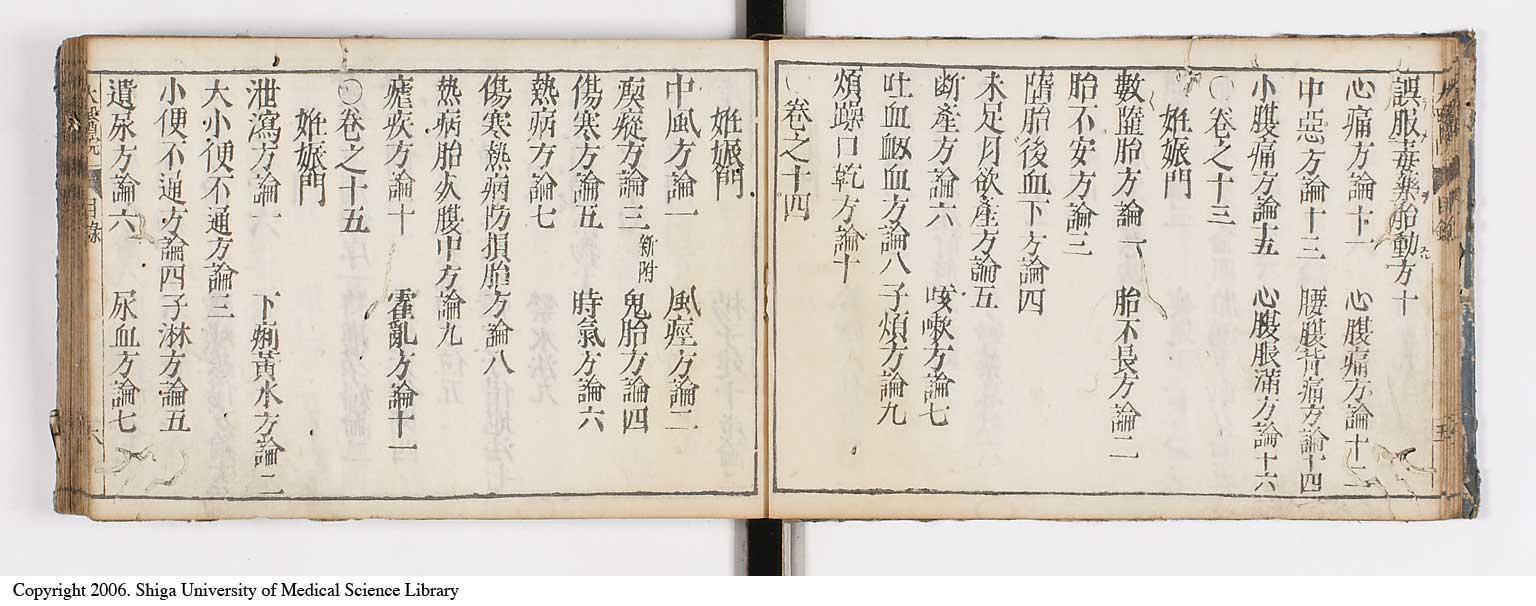 誤服毒藥胎動方十
心痛方論十一 心腹痛方論十二
中惡方論十三 腰腹背痛方論十四
小腹痛方論十五 心腹脹滿方論十六
卷之十三
妊娠門
數墮胎方論一 胎不長方論二
胎不安方論三
墮胎後血下方論四
未足月欲產方論五
斷產方論六 咳嗽方論七
吐血衂血方論八 子煩方論九
煩躁口乾方論十
卷之十四
妊娠門
中風方論一 風痙方論二
瘈瘲方論三 新附 鬼胎方論四
傷寒方論五 時氣方論六
熱病方論七
傷寒熱病防損胎方論八
熱病胎死腹中方論九
瘧疾方論十 霍亂方論十一
卷之十五
妊娠門
泄瀉方論一 下痢黃水方論二
大小便不通方論三
小便不通方論四 子淋方論五
遺尿方論六 尿血方論七
目錄
六
Copyright 2006. Shiga University of Medical Science Library